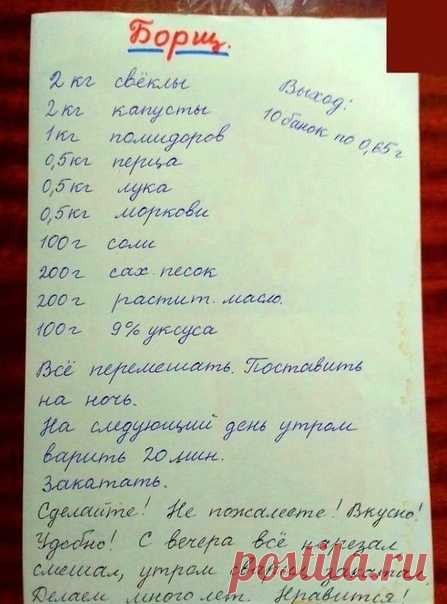 Борщ.
2 кг свёклы
2 кг капусты
1 кг помидоров
0,5 кг перца
0,5 кг лука
0,5 кг моркови
100 г соли
200 г сах. песок
200 г растит. масло.
100 г 9% уксуса
Выход:
10 банок по 0,65 г
Всё перемешать. Поставить
на ночь.
На следующий день утром
варить 20 мин.
Закатать.
Сделайте! Не пожалеете! Вкусно!
Удобно! С вечера всё нарезал
смешал, утром сварил закатал
Делаем много лет. Нравится!
postila.ru